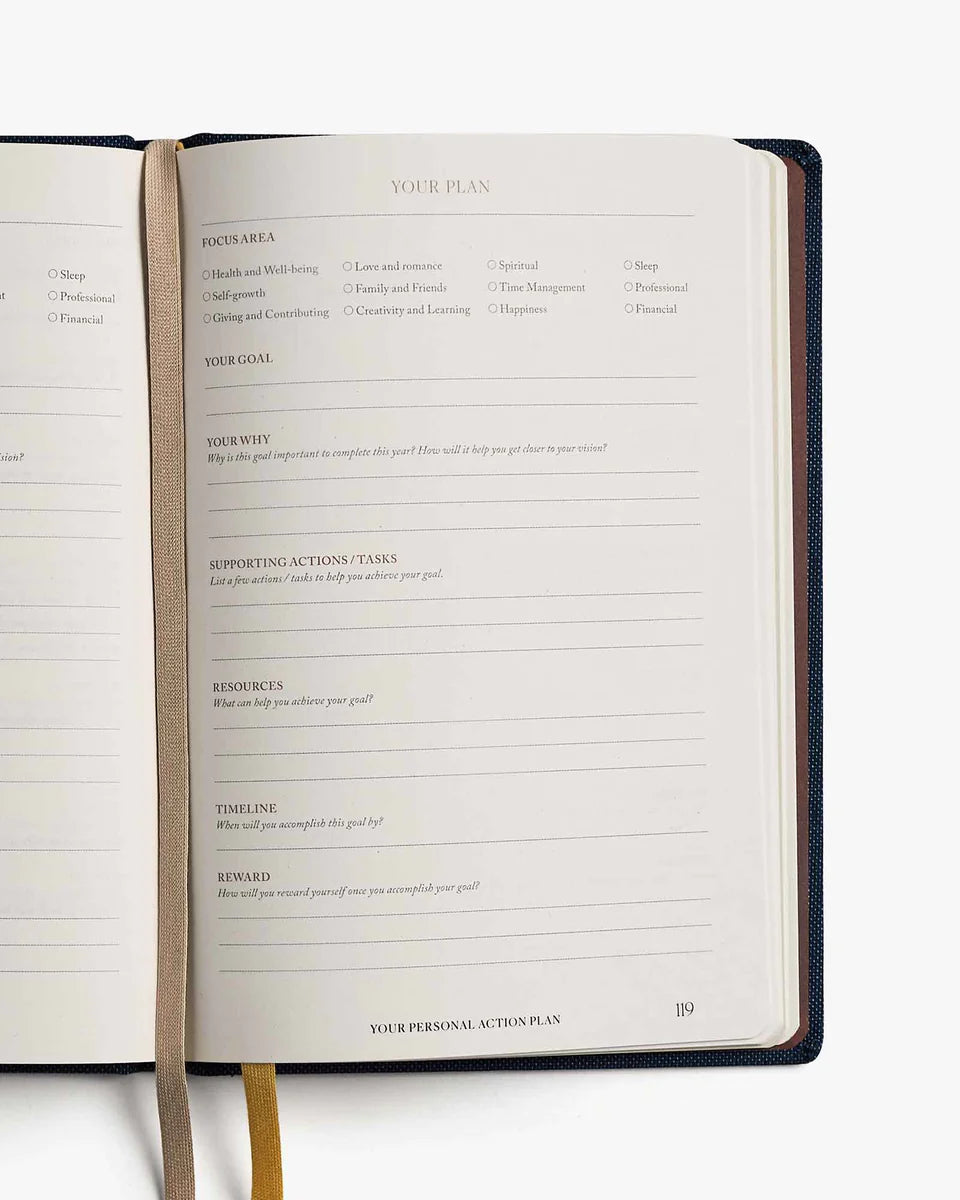 Sleep
Professional
Financial
YOUR PLAN
FOCUS AREA
Health and Well-being Love and romance Spiritual Sleep
Self-growth Family and Friends Time Management Professional
Giving and Contributing Creativity and Learning Happiness Financial
YOUR GOAL
YOUR WHY
Why is this goal important to complete this year? How will it help you get closer to your vision?
SUPPORTING ACTIONS / TASKS
List a few actions / tasks to help you achieve your goal.
RESOURCES
What can help you achieve your goal?
TIMELINE
When will you accomplish this goal by?
REWARD
How will you reward yourself once you accomplish your goal?
YOUR PERSONAL ACTION PLAN
119